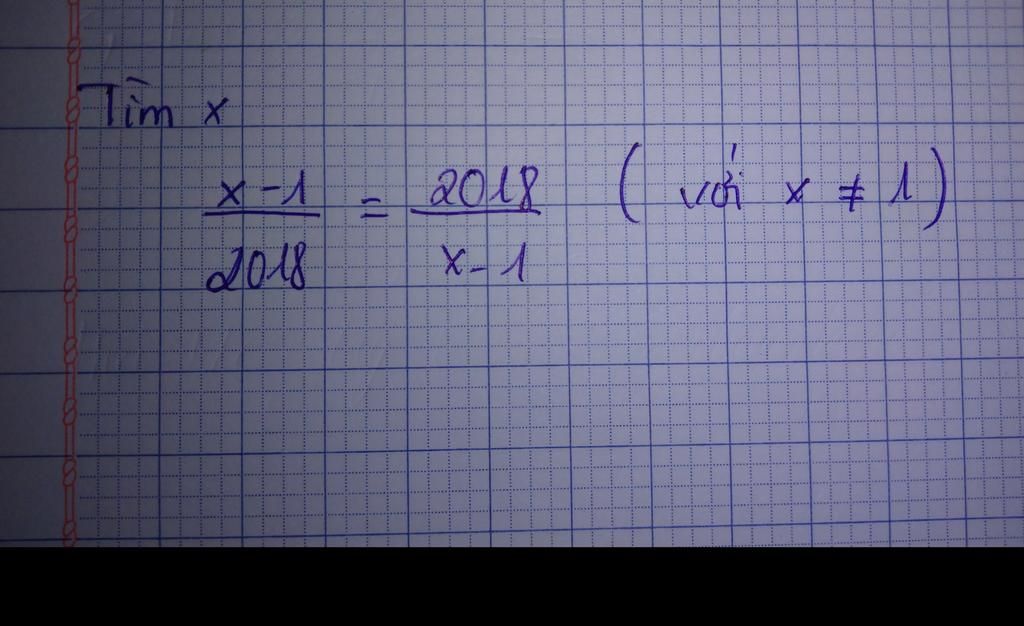 Tìm x
x-1 / 2018 = 2018 / x-1 ( với x ≠ 1 )